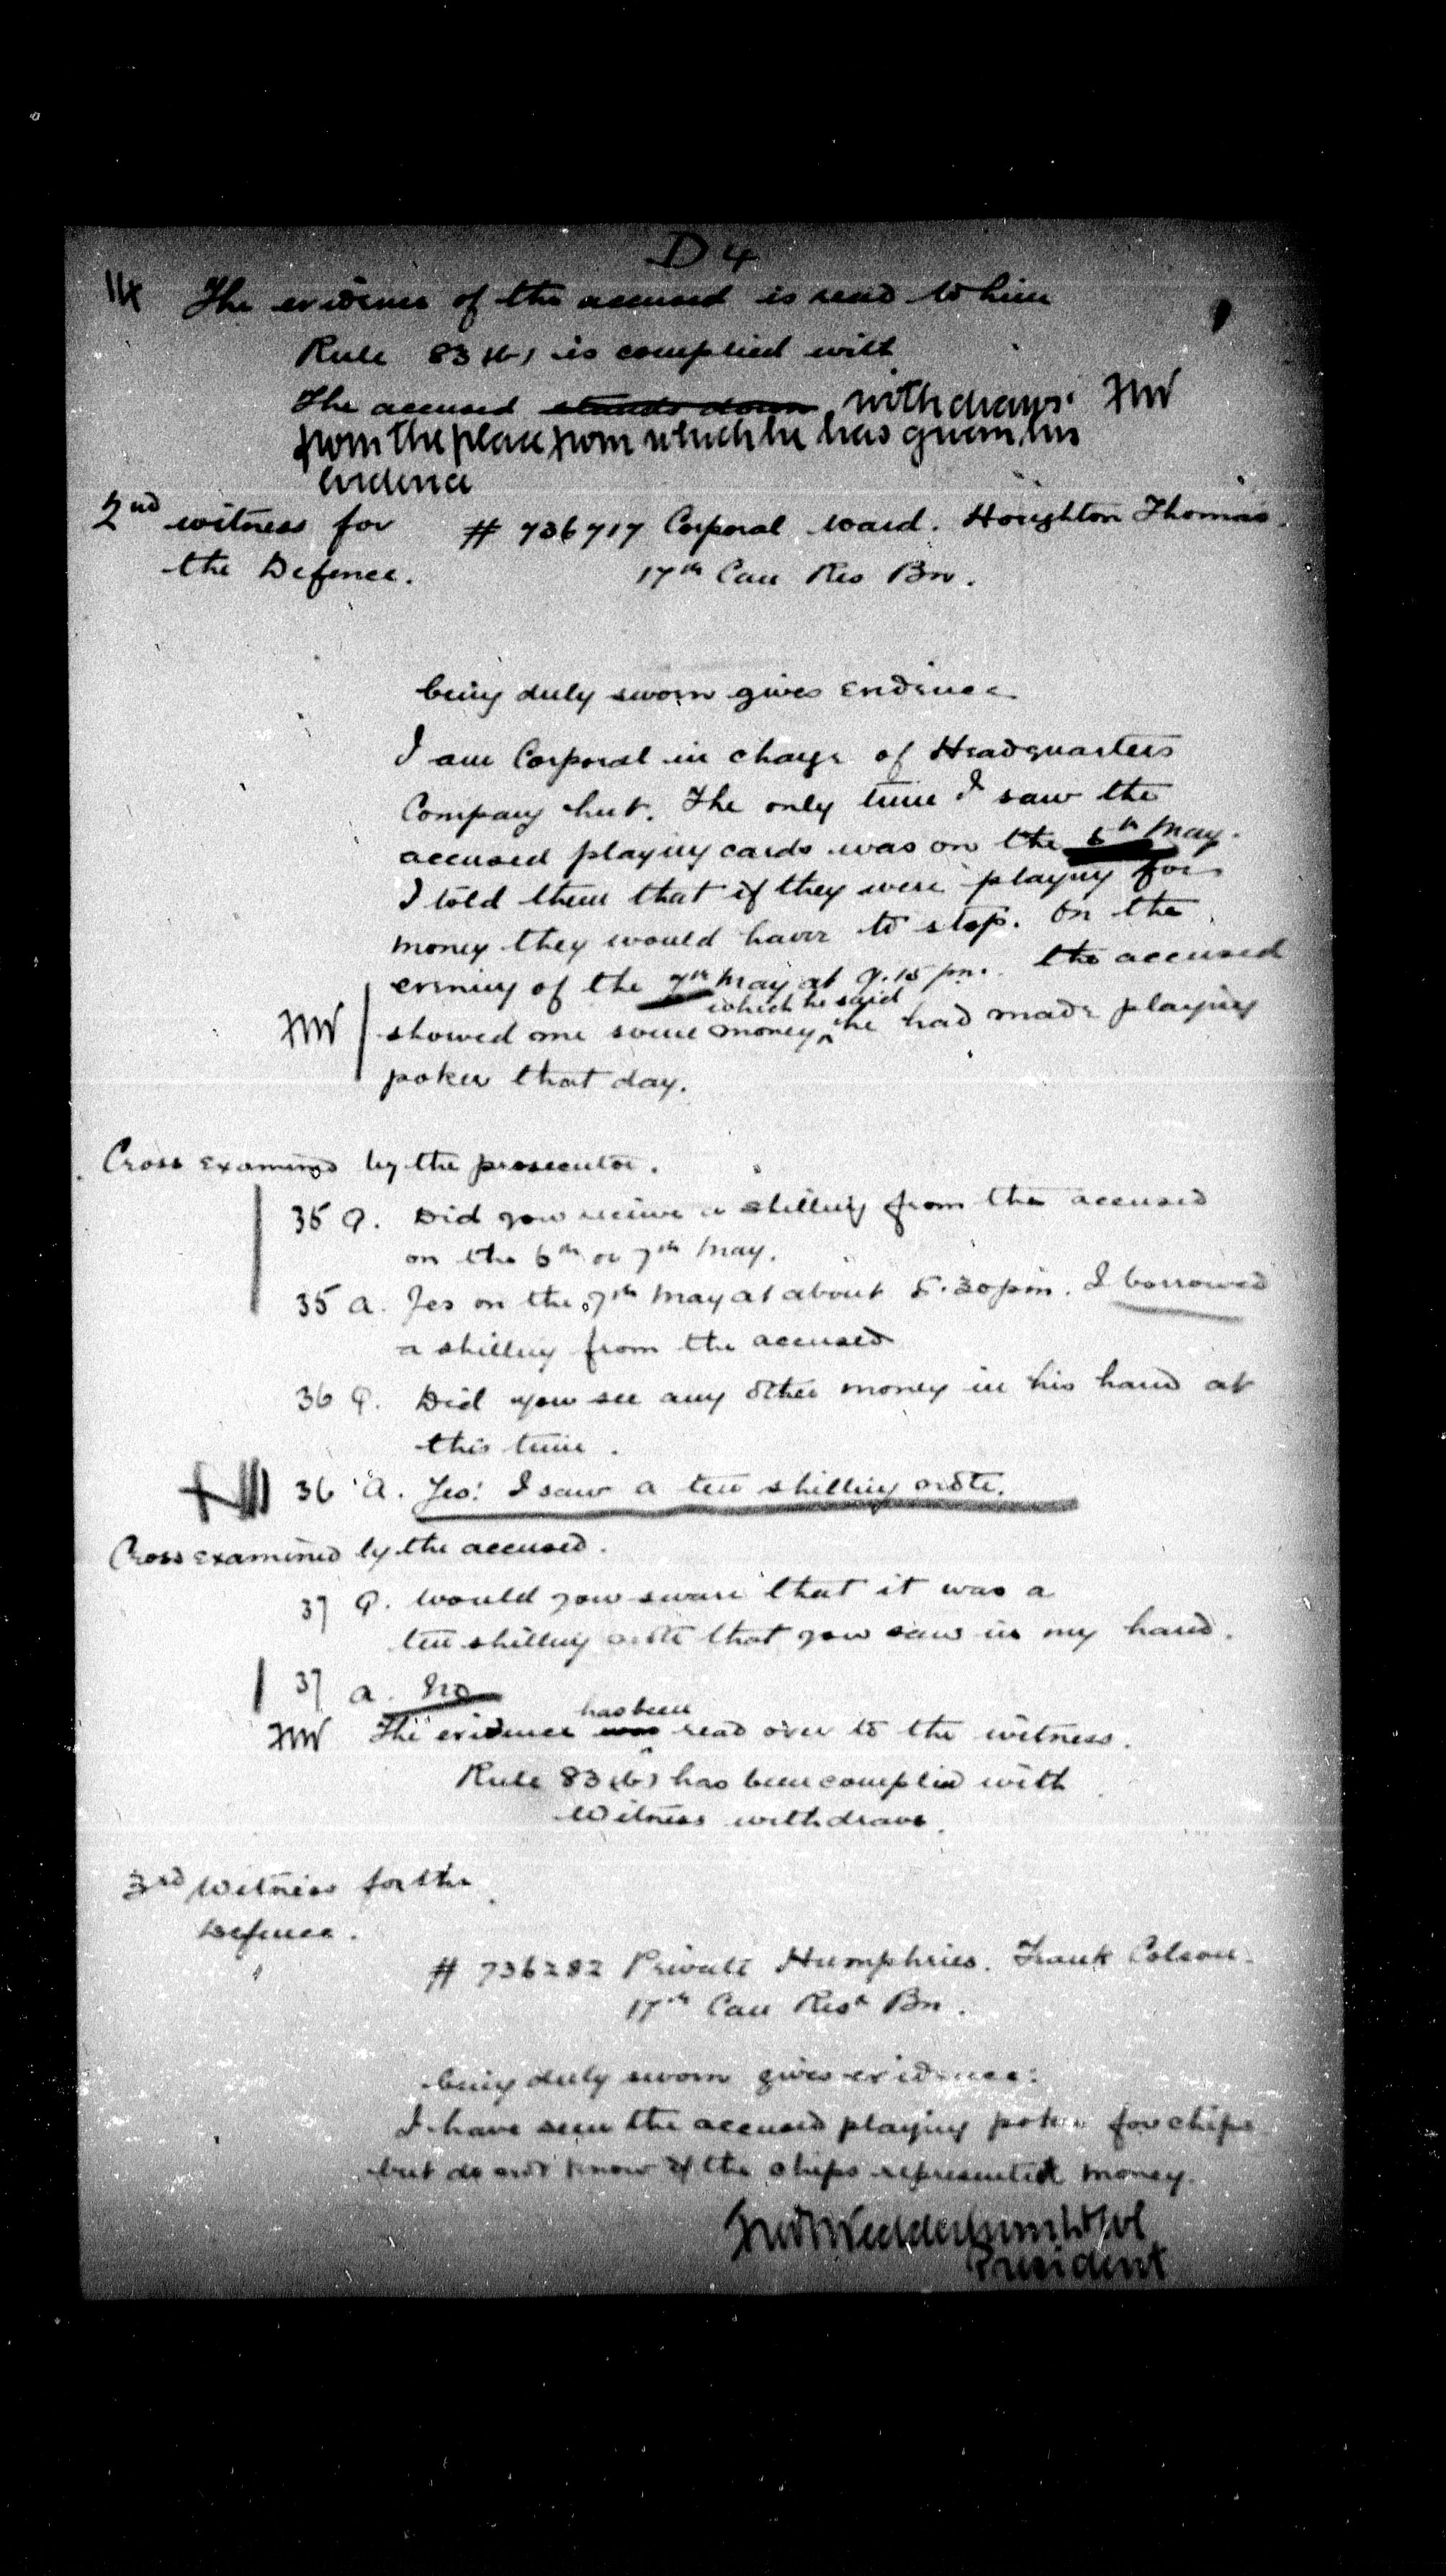 D 4
14 The evidence of the accused is read to him
Rule 83 (b) is complied with
The accused stands down withdraws. FW
from the place from which he has given his
evidence
2nd witness for # 736717 Corporal Ward. Houghton Thomas.
the Defence. 17th Can Res Bn.
being duly sworn gives evidence
I am Corporal in charge of Headquarters
Company hut. The only time I saw the
accused playing cards was on the 6th May.
I told them that if they were playing for
money they would have to stop. On the
evening of the 7th May at 9.15 pm. the accused
which he said
FW showed me some money he had made playing
poker that day.
Cross examined by the prosecutor.
35 Q. Did you receive a shilling from the accused
on the 6th or 7th May.
35 a. Yes on the 7th May at about 5.30 pm. I borrowed
a shilling from the accused
36 Q. Did you see any other money in his hand at
this time.
36 A. Yes. I saw a ten shilling note.
Cross examined by the accused.
37 Q. Would you sware that it was a
ten shilling note that you saw in my hand.
37 a. No
has been
FW The evidence was read over to the witness.
Rule 83 (b) has been complied with
Witness withdraws.
3rd Witness for the
Defence.
# 736282 Private Humphries. Frank Colson.
17th Can Rest Bn.
being duly sworn gives evidence:
I have seen the accused playing poker for chips
but do not know if the chips represented money.
Fred Wedderburn Lt Col
President